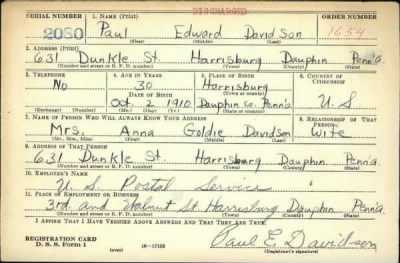 DISCHARGED
SERIAL NUMBER 1. NAME (Print) ORDER NUMBER
2080 Paul Edward Davidson 1654
(First) (Middle) (Last)
2. ADDRESS (Print)
631 Dunkle St. Harrisburg Dauphin Penn'a
(Number and street or R. F. D. number) (Town) (County) (State)
3. TELEPHONE 4. AGE IN YEARS 5. PLACE OF BIRTH 6. COUNTRY OF CITIZENSHIP
No 30 Harrisburg
DATE OF BIRTH (Town or county)
Oct. 2 1910 Dauphin Co. Penn'a U. S.
(Exchange) (Number) (Mo.) (Day) (Yr.) (State or country)
7. NAME OF PERSON WHO WILL ALWAYS KNOW YOUR ADDRESS 8. RELATIONSHIP OF THAT PERSON
Mrs. Anna Goldie Davidson Wife
(Mr., Mrs., Miss) (First) (Middle) (Last)
9. ADDRESS OF THAT PERSON
631 Dunkle St. Harrisburg Dauphin Penn'a
(Number and street or R. F. D. number) (Town) (County) (State)
10. EMPLOYER'S NAME
U. S. Postal Service
11. PLACE OF EMPLOYMENT OR BUSINESS
3rd. and Walnut St. Harrisburg Dauphin Penn'a
(Number and street or R. F. D. number) (Town) (County) (State)
I AFFIRM THAT I HAVE VERIFIED ABOVE ANSWERS AND THAT THEY ARE TRUE.
REGISTRATION CARD
D. S. S. Form 1 (over) 16—17105 Paul E. Davidson
(Registrant's signature)